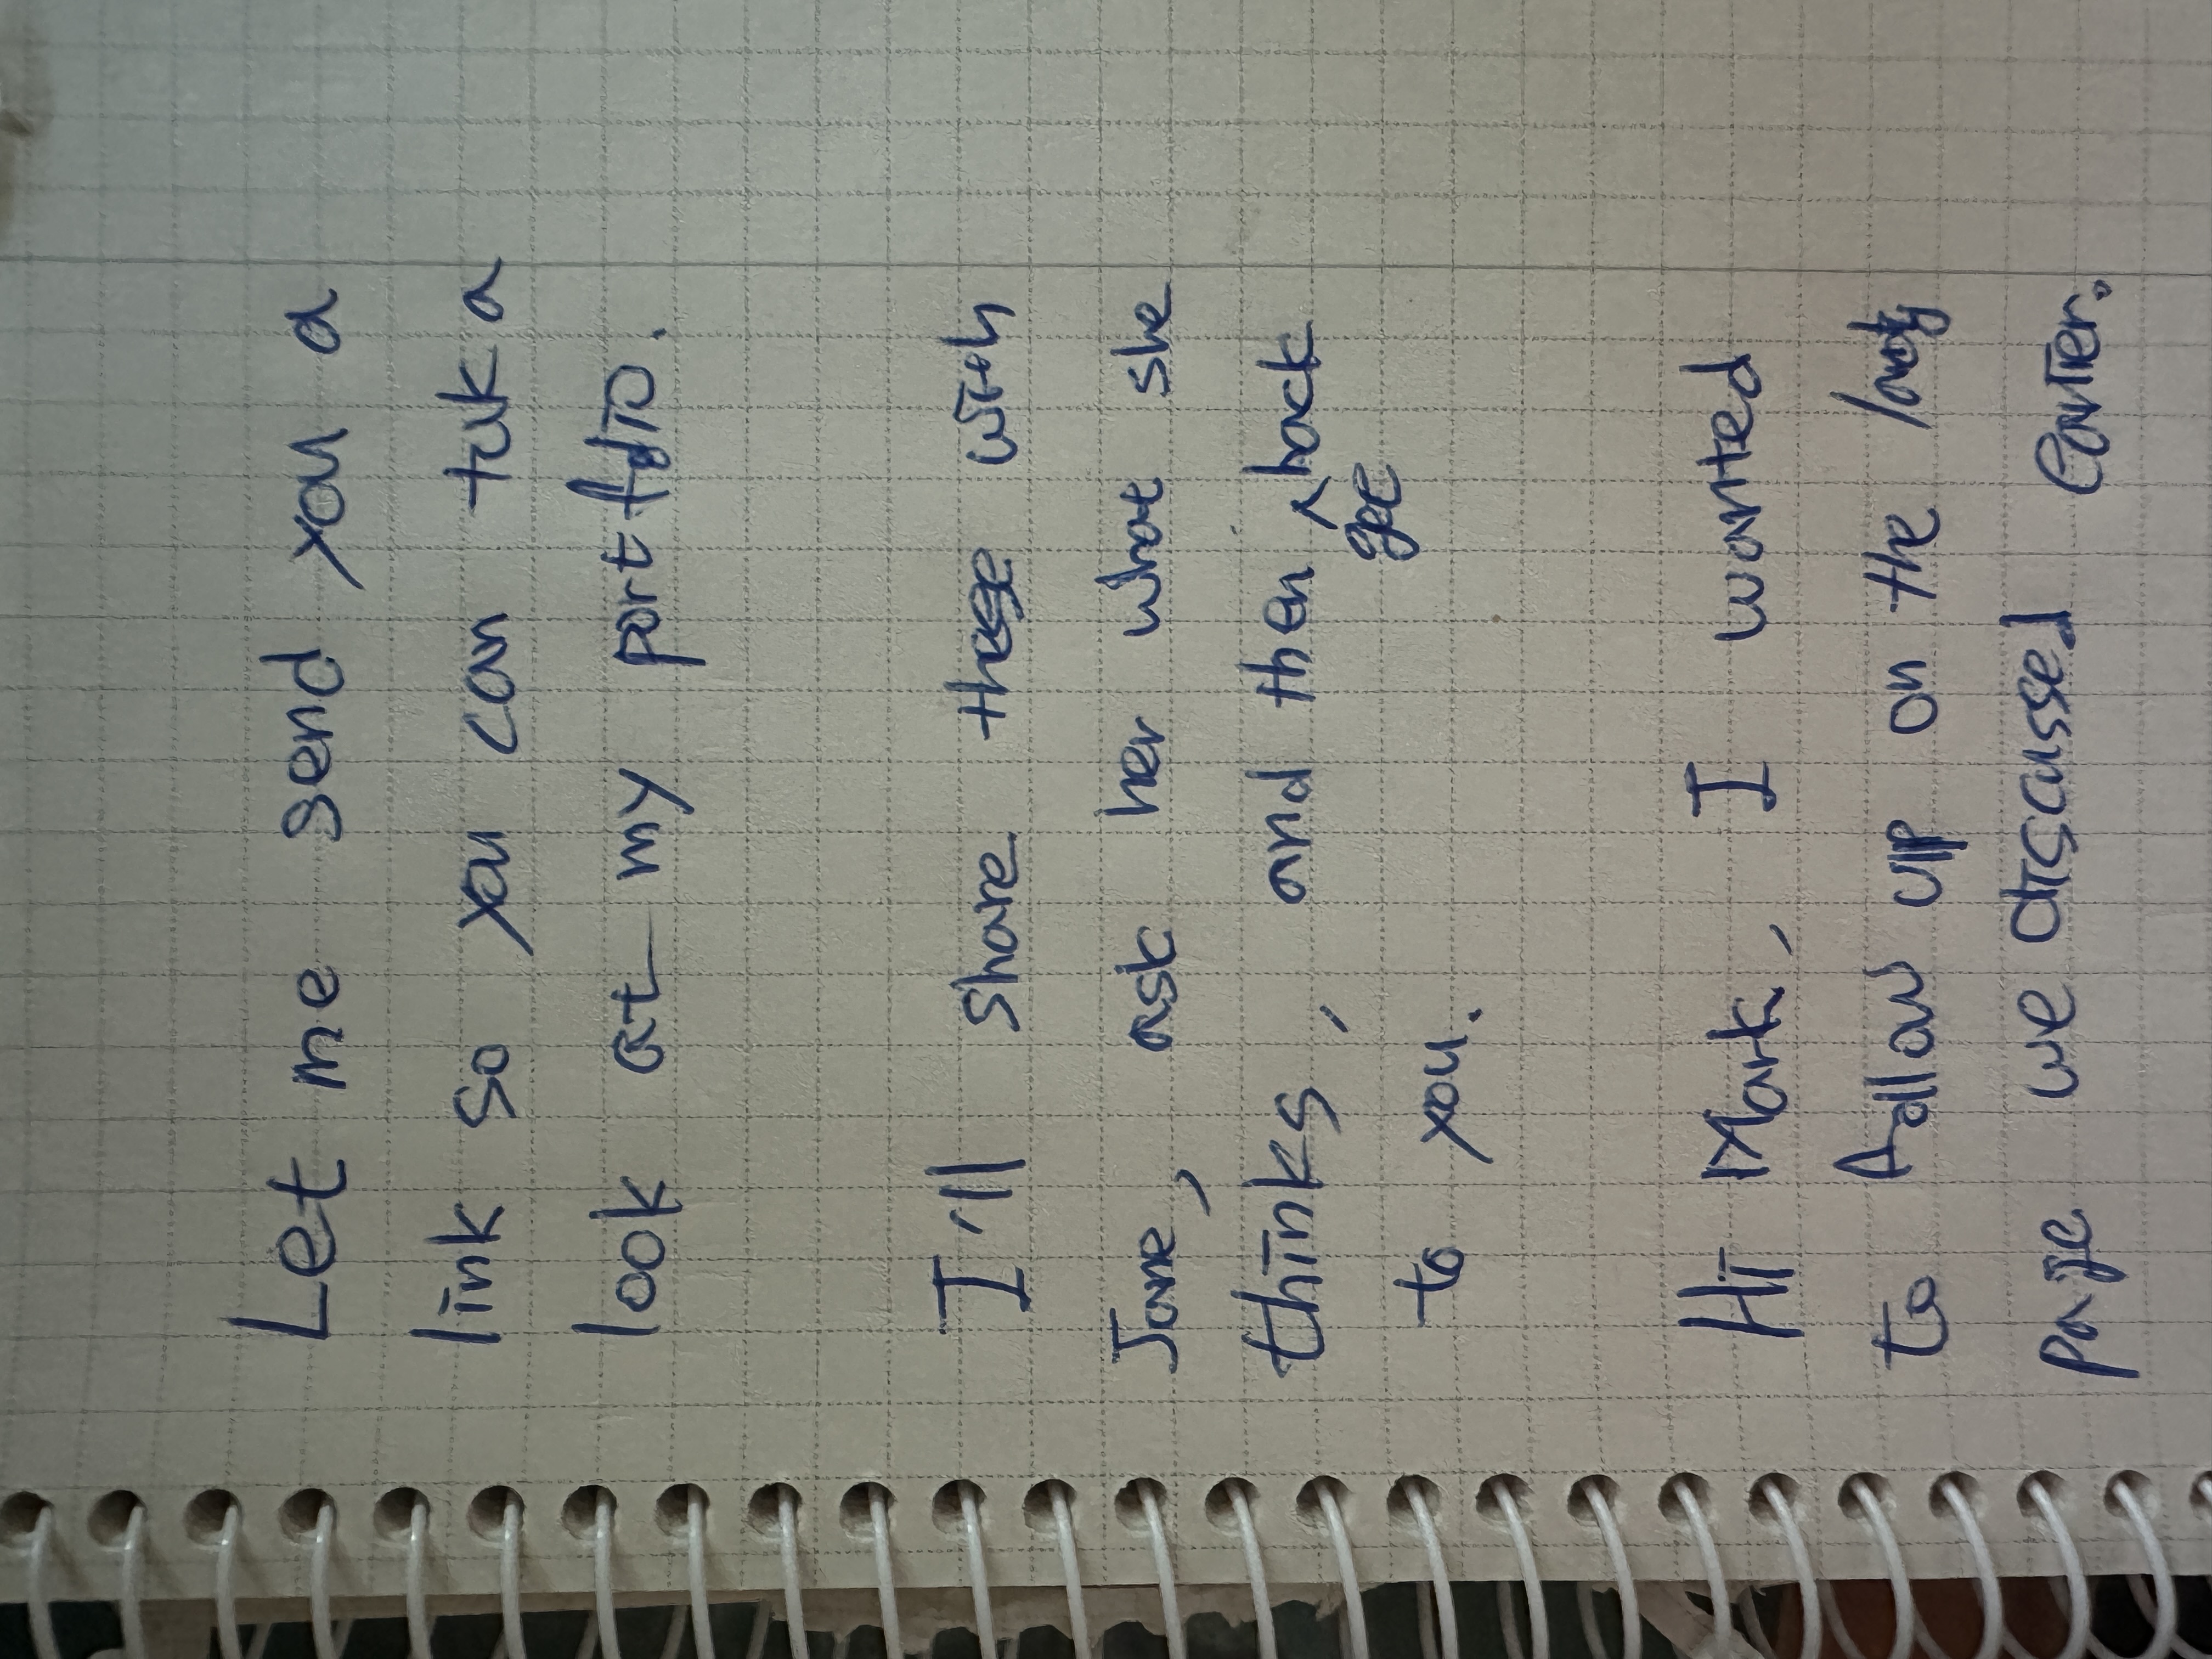 Let me send you a
link so you can tak a
look at my portfolio.
I'll share these with
Jane, ask her what she
thinks, and then get back
to you.
Hi Mark, I wanted
to follow up on the landing
page we discussed earlier.